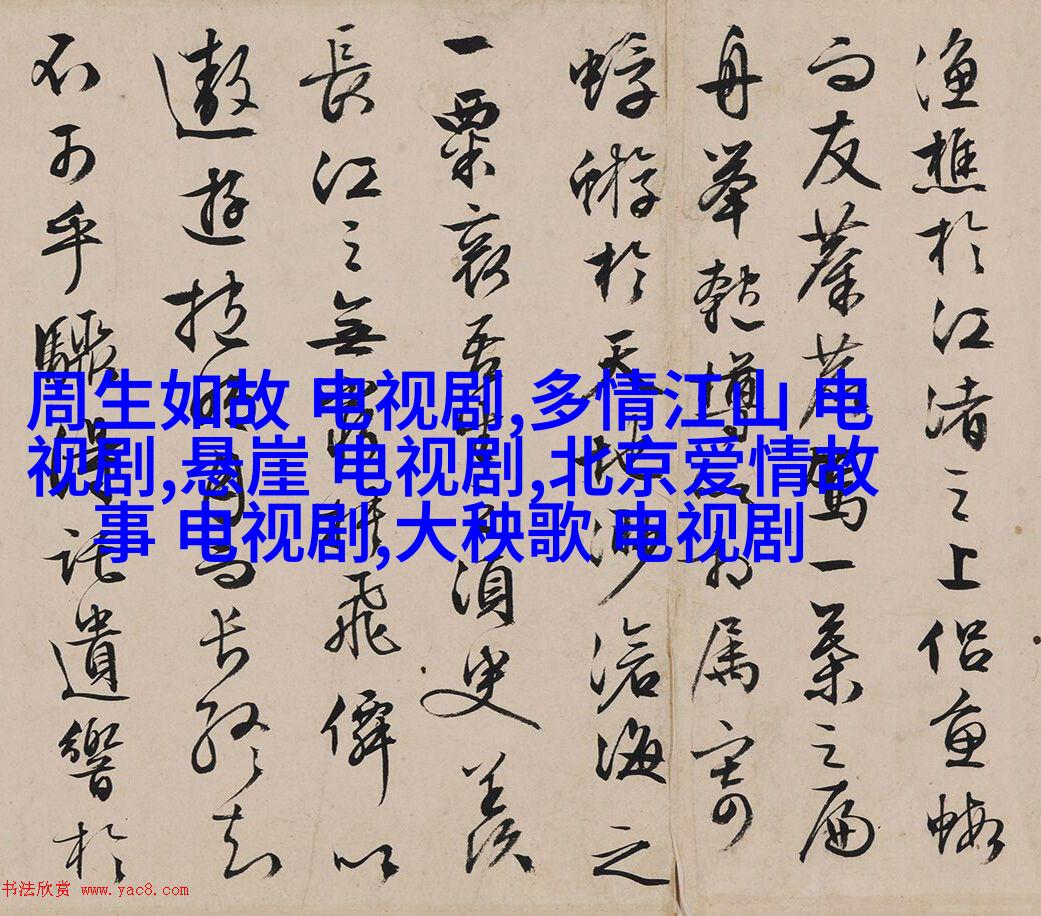 漁樵於江渚之上侶魚蝦
而友麋鹿駕一葉之扁
舟舉匏樽以相屬寄
蜉蝣於天地渺滄海之
一粟哀吾生之須臾羨
長江之無窮挾飛僊以
遨遊抱明月而長終知
不可乎驟得託遺響於
周生如故 电视剧,多情江山 电
视剧,悬崖 电视剧,北京爱情故
事 电视剧,大秧歌 电视剧
书法欣赏 www.yac8.com